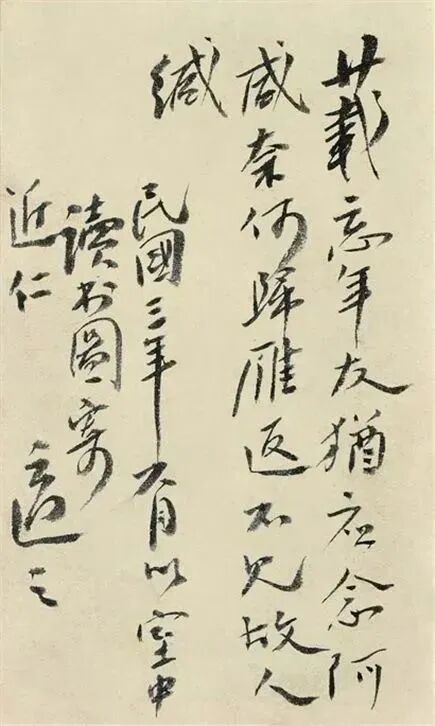 廿載忘年友猶應念阿
咸奈何歸雁返不見故人
緘
民國三年六月以室中
讀書圖寄
近仁
適之